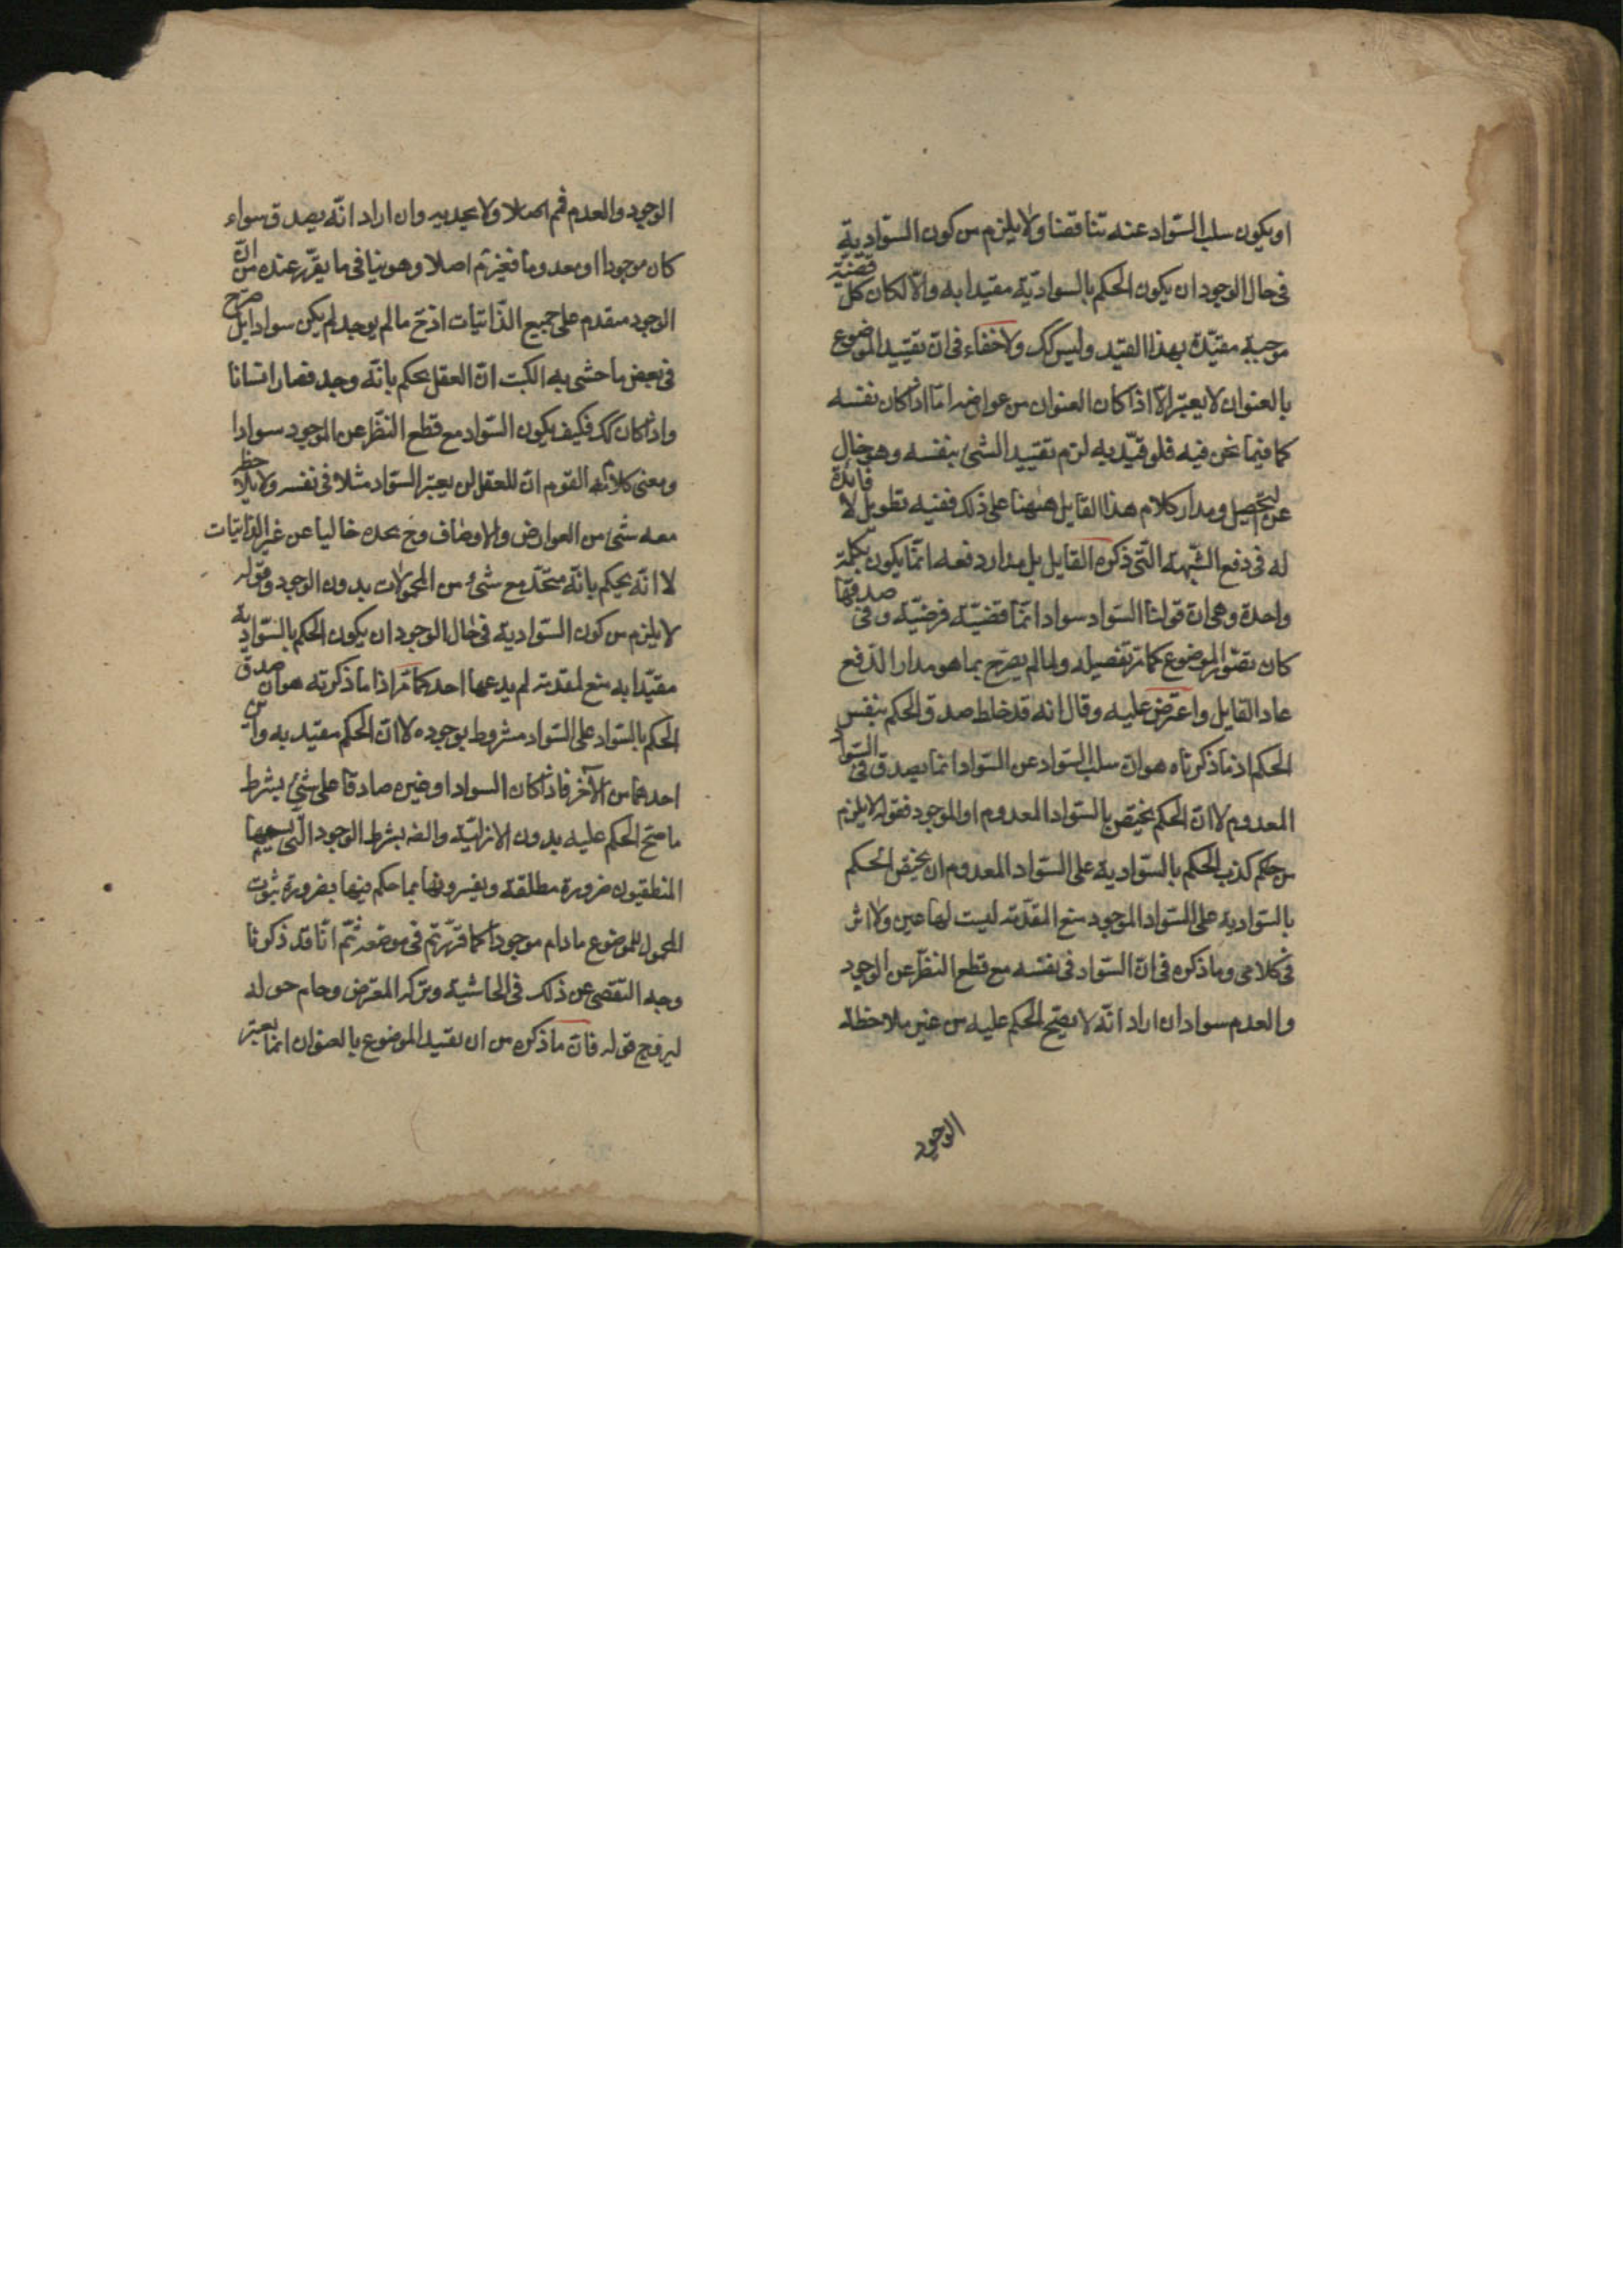 او يكون سلب السّواد عنه تناقضا ولا يلزم من كون السّوادية
في حال الوجود ان يكون الحكم بالسواديّة مقيدا به والّا لكان كل قضية
موجبة مقيّدة بهذا القيد وليس كك ولا خفاء في انّ تقييد الموضوع
بالعنوان لا يعتبر الّا اذا كان العنوان من عوارضه امّا اذا كان نفسه
كما فيما نحن فيه فلو قيّد به لزم تقييد الشئ بنفسه وهو خال
عن التحصيل ومدار كلام هذا القايل هٰهنا على ذلك ففيه تطويل لا فائدة
له في دفع الشّبهة الّتي ذكره القايل بل مدار دفعه انّما يكون بكلمة
واحدة وهي انّ قولنا السّواد سواد انّما قضيّة فرضيّة وفي صدقها
كان تصوّر الموضوع كما مرّ تفصيله ولما لم يصرّح بما هو مدار الدّفع
عاد القايل واعترض عليه وقال انه قد خلط صدق الحكم بنفس
الحكم اذ ما ذكرناه هو انّ سلب السّواد عن السّواد انما يصدق في السّواد
المعدوم لا انّ الحكم يختص بالسّواد المعدوم او الموجود فقوله لا يلزم
من حكم كذب الحكم بالسّوادية على السّواد المعدوم ان يختص الحكم
بالسّوادية على السّواد الموجود منع المقدّمة ليست لها عين ولا اثر
في كلامي وما ذكره في انّ السّواد في نفسه مع قطع النظر عن الوجود
والعدم سواد ان اراد انّه لا يصحّ الحكم عليه من غير ملاحظة
الوجود
الوجود والعدم فم اصلا ولا يجديه وان اراد انّه يصدق سواء
كان موجودا او معدوما فغير تم اصلا وهو ينافي ما يقرّر عنده من انّ
الوجود متقدم على جميع الذّاتيات اذ ح ما لم يوجد لم يكن سوادا بل صرح
في بعض ما حشى به الكتب انّ العقل يحكم بانّه وجد فصار انسانا
واذا كان كك فكيف يكون السّواد مع قطع النّظر عن الوجود سوادا
ومعنى كلام القوم ان للعقل ان يعتبر السّواد مثلا في نفسه ولا يلاحظ
معه شئ من العوارض والاوصاف وح يجده خاليا عن غير الذّاتيات
لا انّه يحكم بانّه متحّد مع شئ من المحمولات بدون الوجود وقوله
لا يلزم من كون السّوادية في حال الوجود ان يكون الحكم بالسّوادية
مقيّدا به منع لمقدمة لم يدعها احد كما مرّ اذا ما ذكرته هو ان صدق
الحكم بالسّواد على السّواد مشروط بوجوده لا انّ الحكم مقيد به واين
احدهما من الآخر فاذا كان السواد او غيره صادقا على شئ بشرط
ما صحّ الحكم عليه بدون الازليّة والضه بشرط الوجود الّتي يسميها
المنطقيون ضرورة مطلقة ويفسرونها بما حكم فيها بضرورة ثبوت
المحمول للموضوع مادام موجودا كما قرّرتم في موضعه ثمّ انّا قد ذكرنا
وجه التفصى عن ذلك في الحاشية وتركه المعترض وحام حوله
ليروج قوله فانّ ما ذكره من ان تقييد الموضوع بالعنوان انما يعتبر